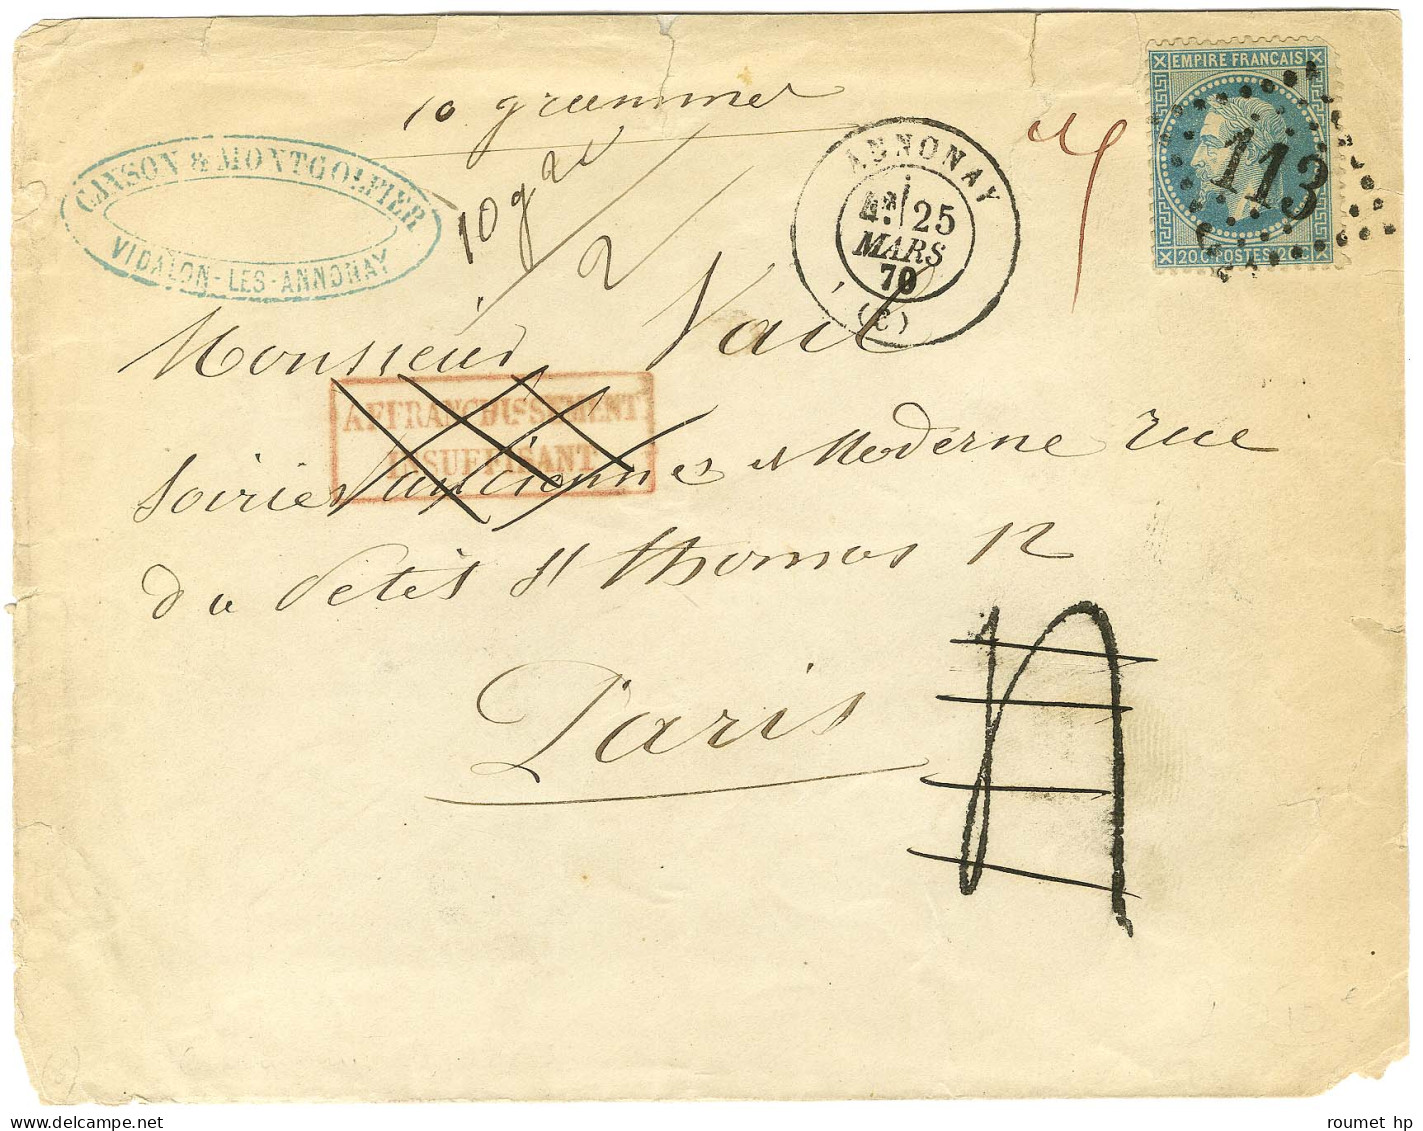 10 grammes
10 gr
2
CANSON & MONTGOLFIER
VIDALON-LES-ANNONAY
ANNONAY
25
MARS
70
(6)
EMPIRE FRANCAIS
113
20 C POSTES 20 C
Monsieur Vail
AFFRANCHISSEMENT
INSUFFISANT
Soiries anciennes et Moderne rue
du Petit St Thomas 12
Paris
roumet hp